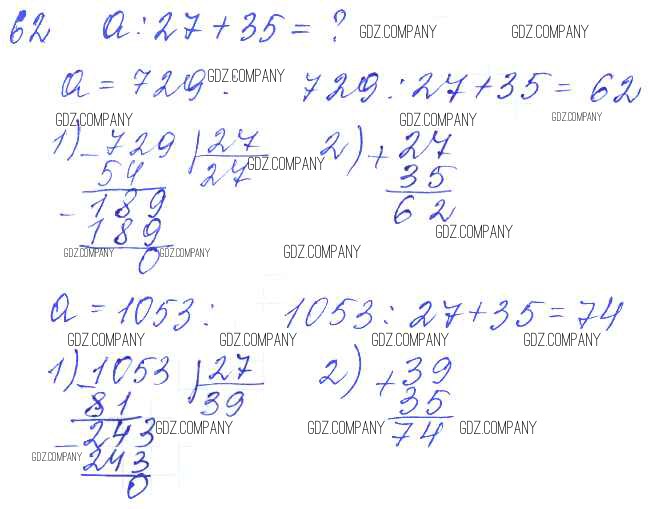 62 a : 27 + 35 = ? GDZ.COMPANY GDZ.COMPANY
a = 729 : GDZ.COMPANY 729 : 27 + 35 = 62
GDZ.COMPANY GDZ.COMPANY GDZ.COMPANY
1) - 729 | 27 2) + 27
54 27 GDZ.COMPANY 35
- 189 62
189 GDZ.COMPANY
GDZ.COMPANY 0 GDZ.COMPANY GDZ.COMPANY
a = 1053 : 1053 : 27 + 35 = 74
GDZ.COMPANY GDZ.COMPANY GDZ.COMPANY GDZ.COMPANY
1) - 1053 | 27 2) + 39
81 39 35
- 243 GDZ.COMPANY GDZ.COMPANY 74 GDZ.COMPANY
GDZ.COMPANY 243
0